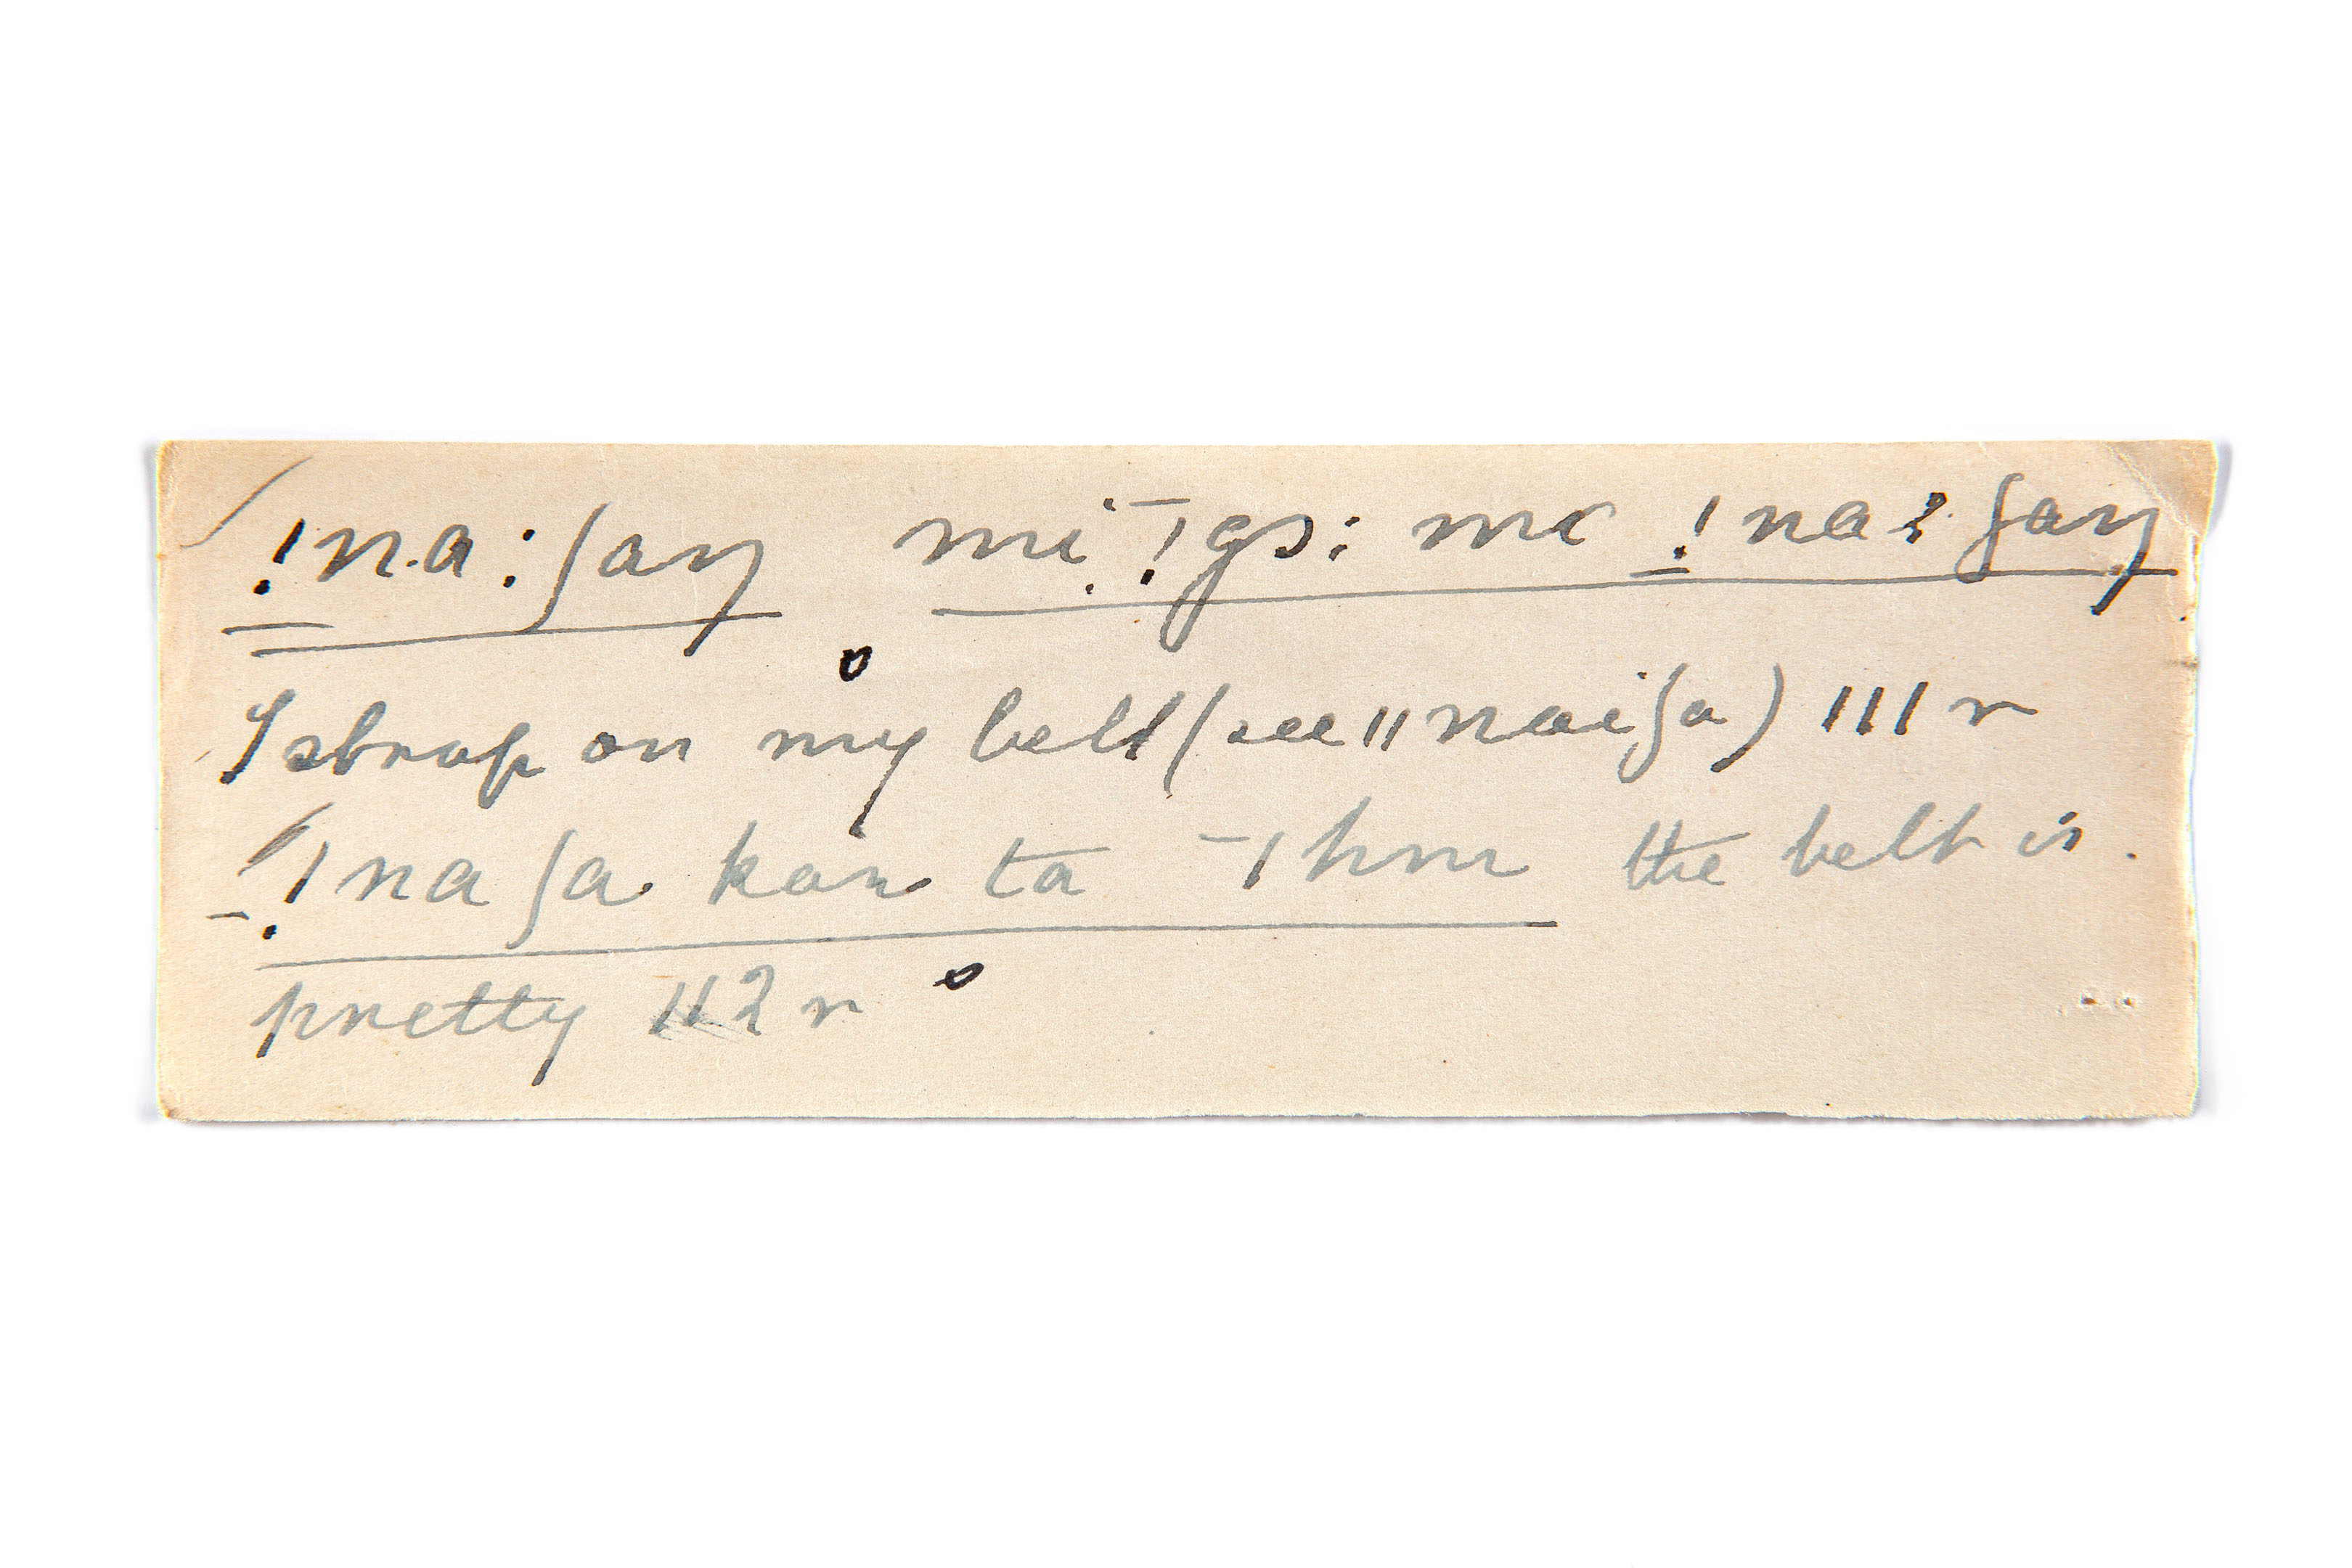 !na:ʃaŋ mi ˉ!gɔ: mɛ !na:ʃaŋ
I strap on my belt (see ǁnaiʃa) III r
ˉ!naʃa kan ta ˉǀhm the belt is
pretty II 2 r